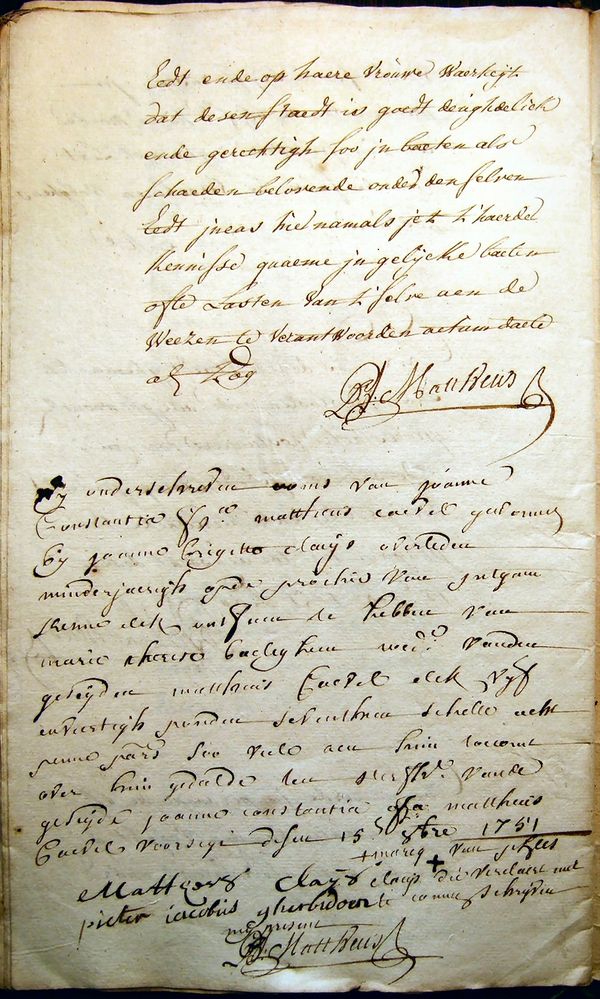 Eedt ende op haere vrouwe Waerheijt
dat desen staedt is goedt deughdelick
ende gerechtigh soo jn baeten als
schaeden belovende onder den selven
Eedt jn cas hier namals jet t'haerder
kennisse quaeme jn gelijcke baeten
ofte Lasten van t'selve aen de
Weezen te verantwoorden actum daete
als
Mattheus
wy onderschreven ooms van joanne
Constantia mattheus Caevel gebooren
by joanne brigitte claijs overleden
minderjaerigh op de prochie van
kenne elck ontfaen te hebben van
marie therese wed.e vanden
geseijden mattheus Caevel elck vijf
en veertigh ponden seventhien schelle acht
penne pars soo vele aen hun toecomt
over hun gedeelde ten sterfh. vande
geseijde joanne constantia matthijs
Caevel voorseyt desen 15 1751
marij van
Mattheus Claijs claijs die verclaert niet
pieter iacobus te connen schrijven
my present
Mattheus